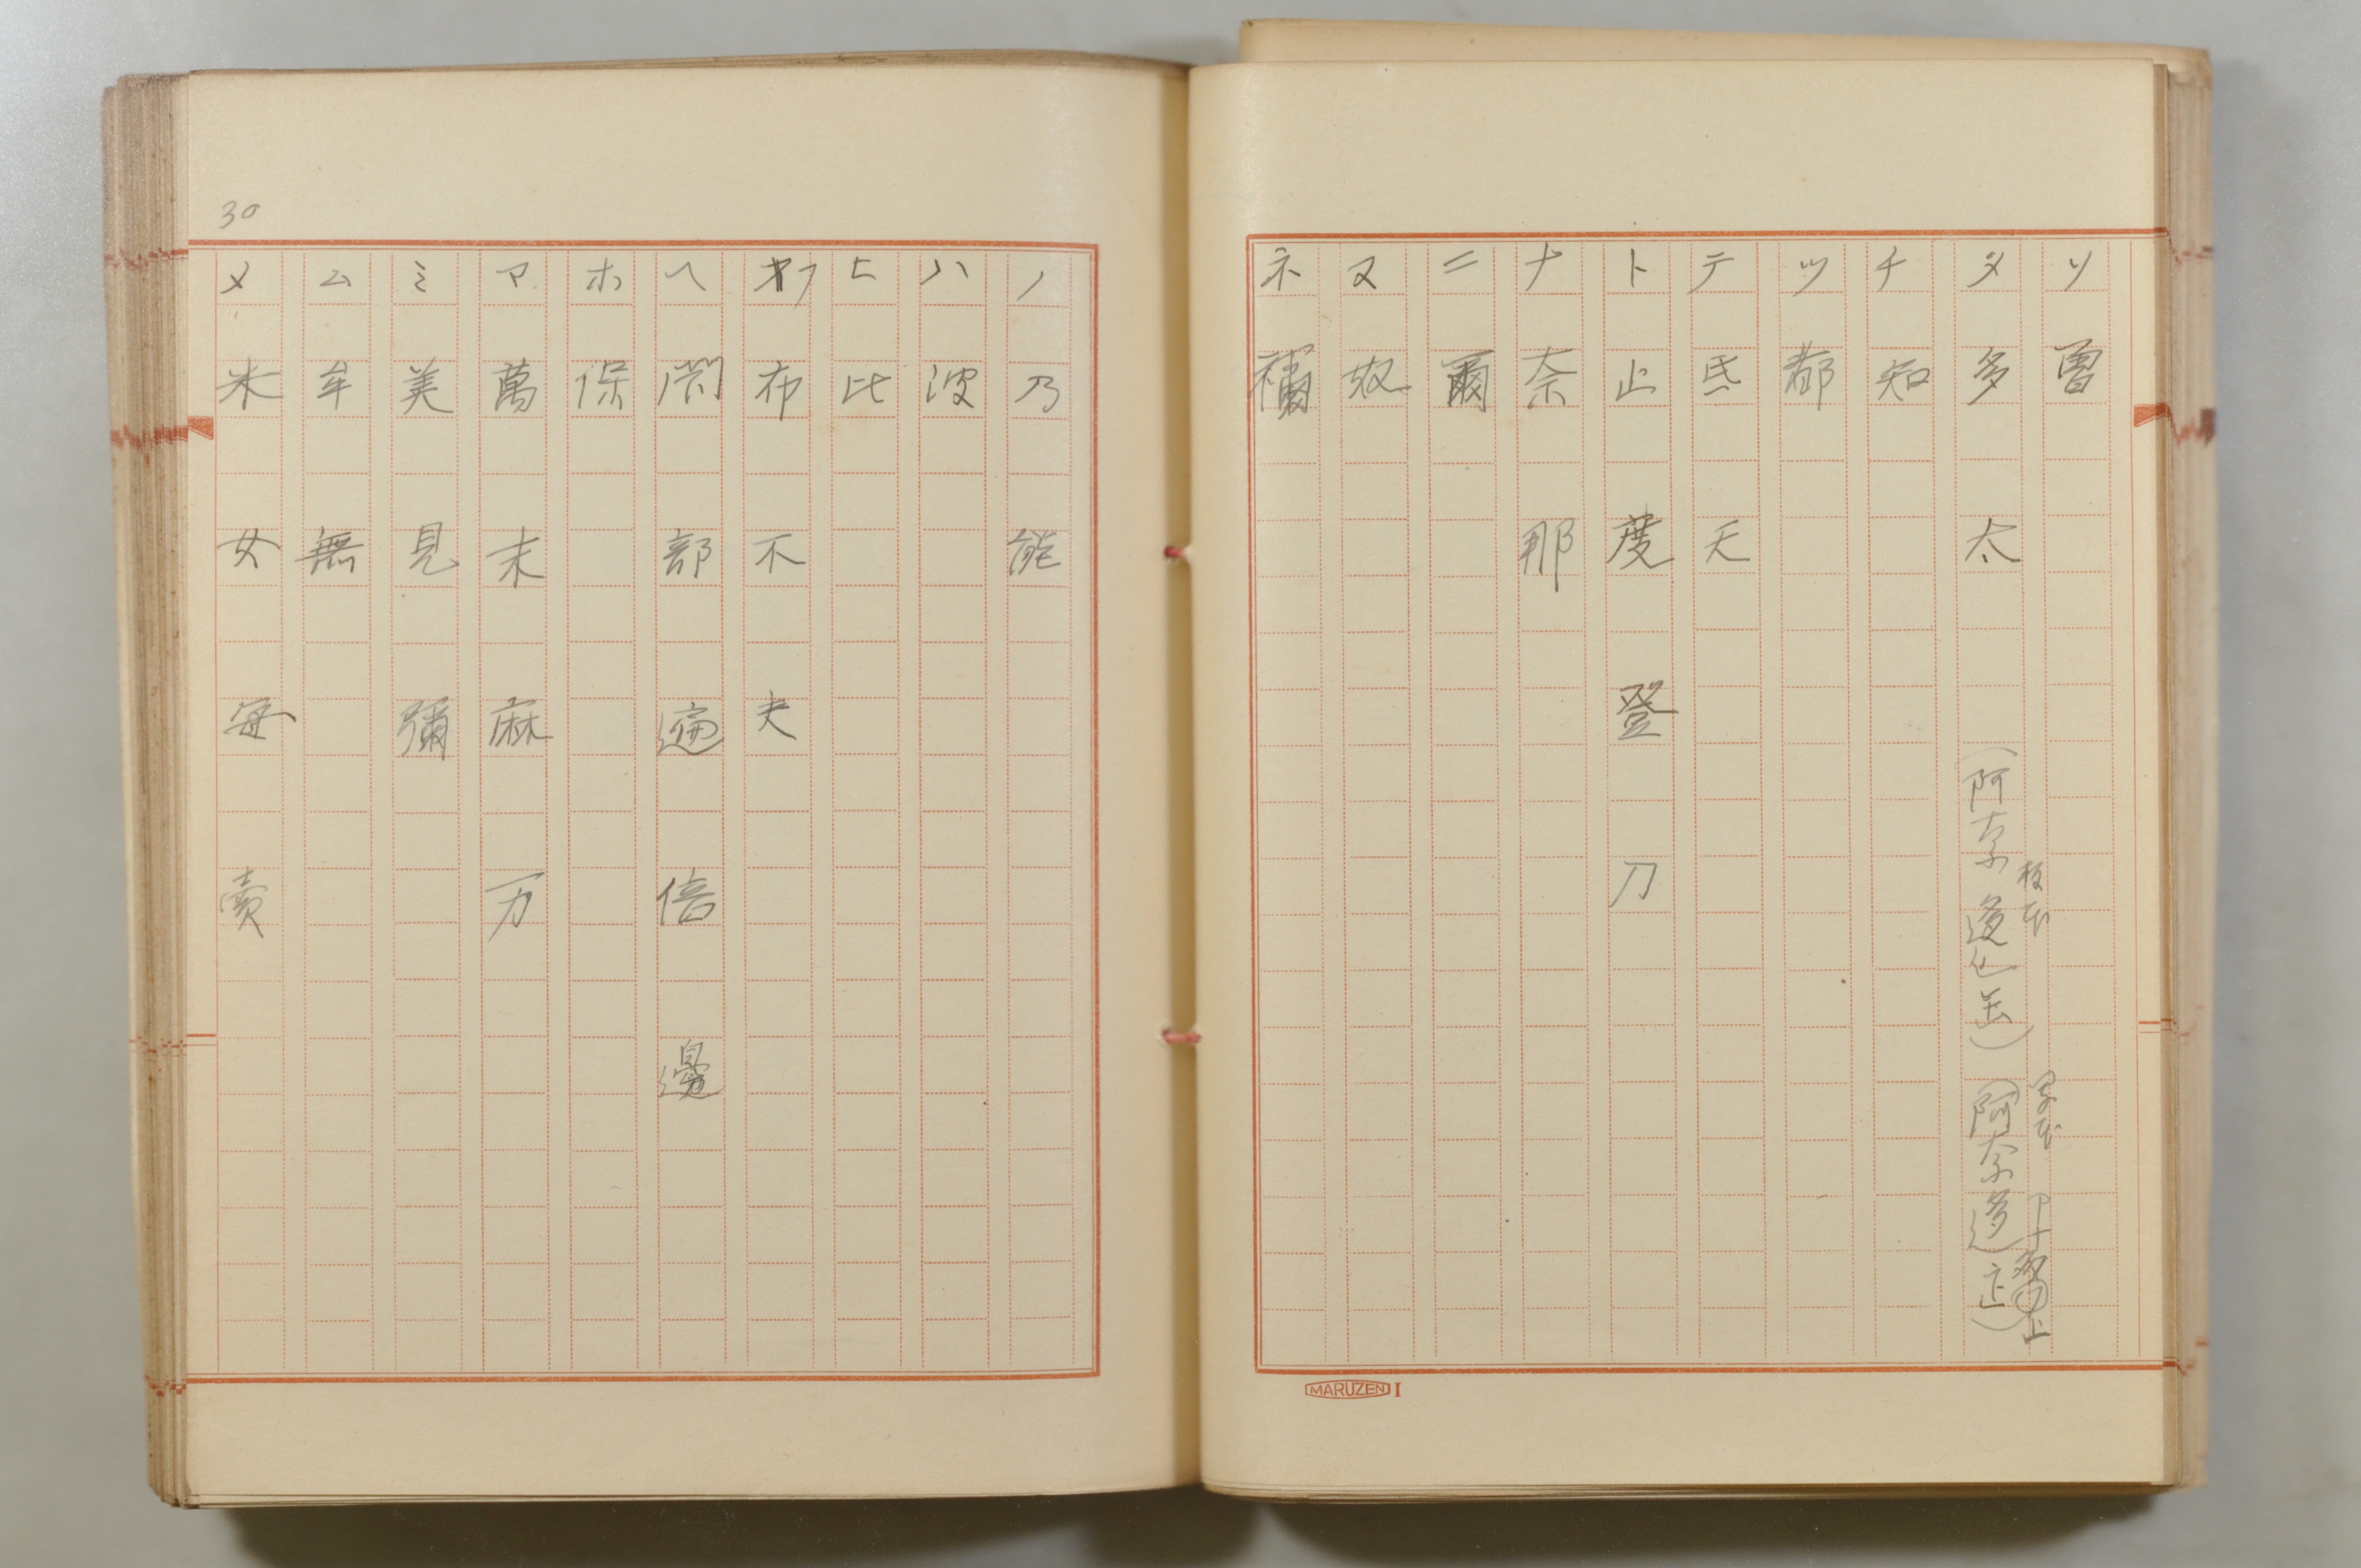 ソ 曽
タ 多 太 (阿奈邊乞缶) (阿奈邊正)
板本
写本
チ 知
ツ 都
テ 氐 天
ト 止 度 登 刀
ナ 奈 那
ニ 爾
ヌ 奴
ネ 禰
MARUZEN I
30
ノ 乃 能
ハ 波
ヒ 比
フ 布 不 夫
ヘ 閇 部 遍 倍 邊
ホ 保
マ 萬 末 麻 万
ミ 美 見 彌
ム 牟 無
メ 米 女 毎 賣